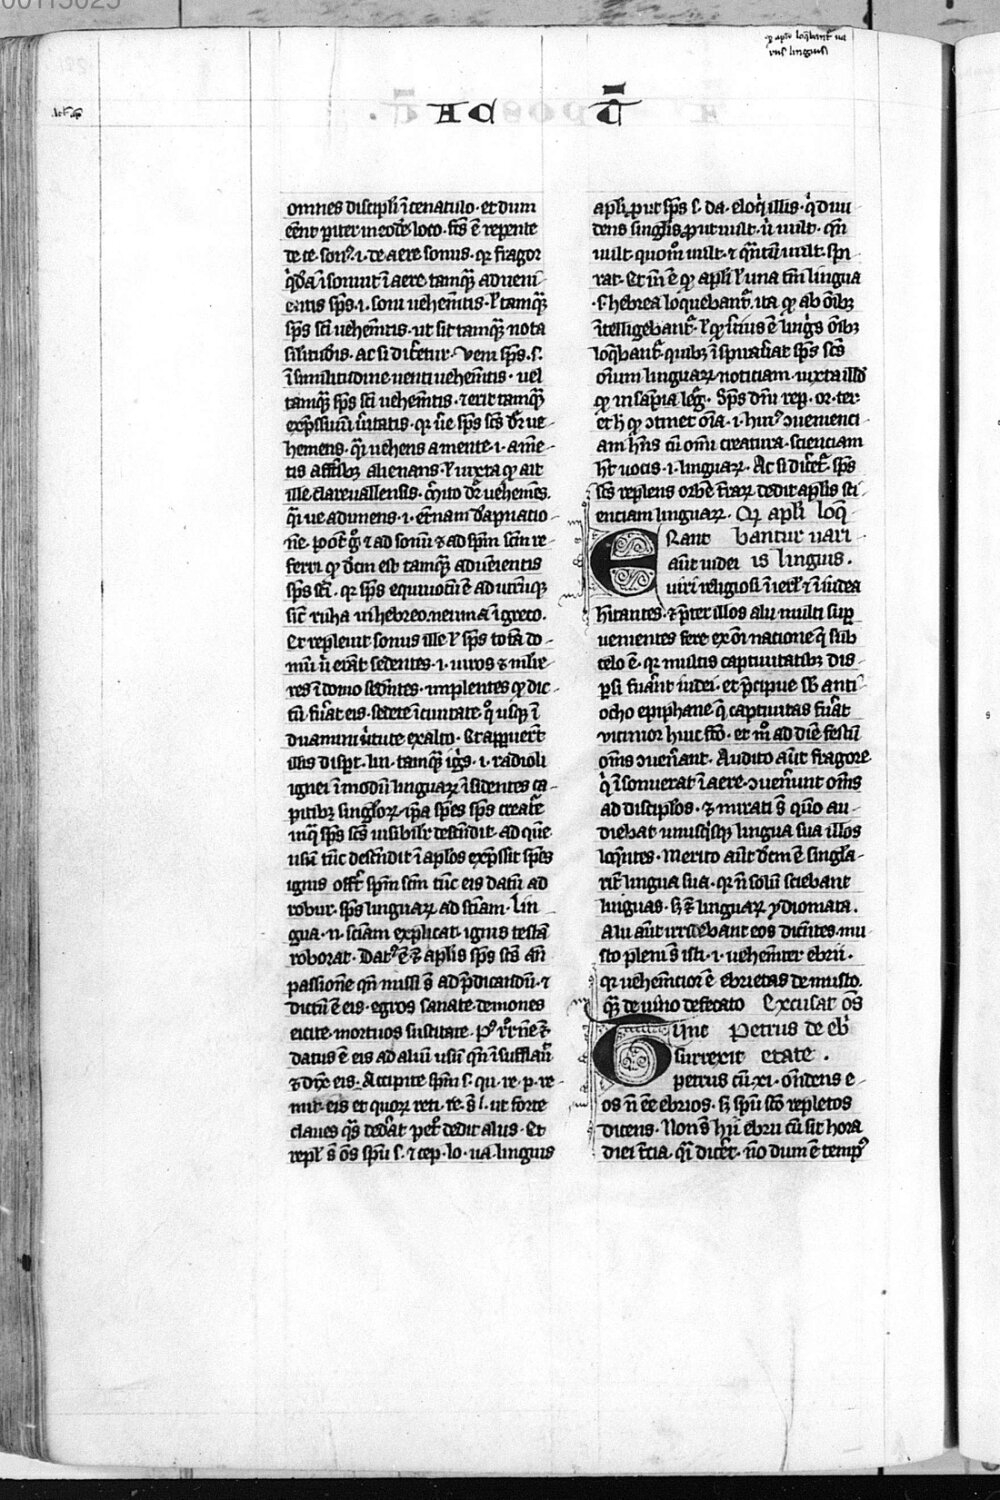 00113023
ꝙ apłi loq̄bant᷑ ua
riis linguis
Act᷑ ap
AC T̄
omnes discipli ī cenaculo · et dum
eēnt pariter in eodē loco · fc̄s ē repente
de ce · son᷒ · i · de aere sonus · qꝛ fragor
q̇dā īsonuit ī aere tamqᷓ aduēni
entis sp̄s · i · soni uehem̄tis · ł tamqᷓ
sp̄s sc̄i uehem̄tis · ut sit tamqᷓ nota
silitudīs · ac si dicetur · Veni sp̄s · s ·
ī similitudine uenti uehem̄tis · uel
tamqᷓ sp̄s sc̄i uehem̄tis · ⁊ erit tamqᷓ
exp̄ssiuū ūitatis · qꝛ ūe sp̄s sc̄s dr̄ ue
hemens · qꝛ uehens a mente · i · a mē
tis affcībꝫ alienans · ł iuxta ꝙ ait
ille clareuallensis · m̄ito dr̄ uehem̄s ·
qͥ ue adimens · i · et̄nam dāpnatio
nē · pōt g̊ ⁊ ad sonū ⁊ ad sp̄m sc̄m re
ferri ꝙ dc̄m est tamqᷓ aduenientis
sp̄s sc̄i · qꝛ sp̄s equiuocū ē ad utrūqꝫ
sic̄ ruha in hebreo · neuma ī greco ·
Et repleuit sonus ille ł sp̄s totā do
mū ū erāt sedentes · i · uiros ⁊ mlie
res ī domo sedentes · implentes ꝙ dic
tū fuāt eis · sedete ī ciuitate q̊ usqꝫ ī
duamini ūtute ex alto · Et apparuer̄t
illis disp̄t · lin · tamqᷓ ig̃s · i · radioli
ignei ī modū linguaꝝ īsidentes ca
pitibꝫ singloꝝ · ip̄a sp̄es sp̄s create
inq̄ sp̄s sc̄s uisibilit᷑ descendit · ad quē
usū tūc descendit ī aplos exp̄ssit sp̄es
ignis · offc̄ sp̄m sc̄m tūc eis datū ad
robur · sp̄s linguaꝝ ad sciam · Lin
gua · n · sciam explicat · ignis testā
roborat · Dat᷒ ē ⁊ aplis sp̄s sc̄s añ
passionē qn̄ missi s̄ ad p̄dicandū · ⁊
dictū ē eis · egros sanate · demones
eicite · mortuos suscitate · P᷒ rr̄nē ⁊
datus ē eis ad aliū usū qn̄ ī sufflauit
⁊ dix̄ eis · Accipite sp̄m s · qu · re · p · re
mit · eis et quoꝝ reti · re · s̄ l · ut forte
claues qᷓs dedat pet᷑ dedit aliis · Et
repl̄ s̄ oēs sp̄u s · ⁊ cep · lo · ua · linguis
apłi ꝓut sp̄s s · da · eloq̇ illis · q̇ diui
dens singlis ꝓut uult · ū uult · qn̄
uult · quom̊ uult · ⁊ qᷓntū uult · spi
rat · Et m̄ ē ꝙ apłi ł una tm̄ lingua
· s · hebrea loquebant᷑ · ita ꝙ ab oībꝫ
ītelligebant᷑ · ł ꝙ ūius ē ling̃s oībꝫ
loq̄bant᷑ · quibꝫ īspirauat sp̄s sc̄s
oīum linguaꝝ noticiam · iuxta illd̄
ꝙ in sap̄ia leg᷑ · Sp̄s dn̄i rep · or · ter ·
et h̄ ꝙ ↄtinet oīa · i · hui᷒ ↄuenienci
am hn̄s cū omi creatura · scienciam
ht̄ uocis · i · linguaꝝ · Ac si dicet᷑ · sp̄s
sc̄s replens orbē t̄raꝝ dedit aplīs sci
entiam linguaꝝ · Qꝛ apłi loq̄
bantur uari
is linguis ·
ERant
aūt iudei
uiri religiosi ī ierlm̄ ⁊ ī iudea
hītantes · ⁊ p̄ter illos alii multi sup
uenientes fere ex oī natione q̄ sub
celo ē · qꝛ multis captiuitatibꝫ dis
ꝑsi fuāt iudei · et p̄cipue sb̄ anti
ocho epiphane q̄ captiuitas fuāt
uicinior huic fc̄o · et iō ad diē festū
om̄s ↄuenant · Audito aūt fragore
q̇ īsonuerat ī aere · ↄuenunt om̄s
ad disciplos · ⁊ mirati s̄ qn̊ au
diebat unusq̇sqꝫ lingua sua illos
loq̄ntes · Merito aūt dc̄m ē singla
rit᷑ lingua sua · qꝛ n̄ solū sciebant
linguas · sꝫ ⁊ linguaꝝ ydiomata ·
Alii aūt irridebant eos dicentes · mu
sto pleni s̄ isti · i · uehem̄ter ebrii ·
qꝛ uehemētior ē ebrietas de musto ·
qᷓ de uino defecato Excusat os
Petrus de eb
etate ·
Tūc
surrexit
petrus cū · xi · ōndens e
os n̄ eē ebrios · sꝫ sp̄u sc̄o repletos
dicens · Non s̄ hii ebrii cū sit hora
diei t̄cia · qͥ dicet᷑ · nō dum ē temp᷒